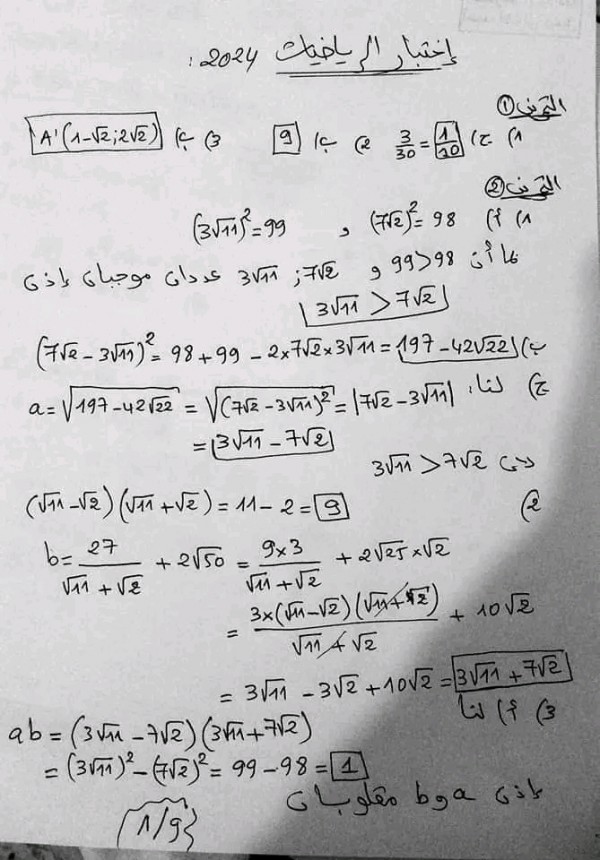 إختبار الرياضيات 2024 :
التمرين ①
1) ج) 3/30 = 1/10   2) ب) 9   3) ب) A'(1-√2;2√2)
التمرين ②
1) أ) (7√2)² = 98 و (3√11)² = 99
بما أن 99>98 و 7√2 ; 3√11 عددان موجبان إذن
3√11 > 7√2
ب) (7√2 - 3√11)² = 98 + 99 - 2×7√2×3√11 = 197 - 42√22
ج) لنا: a = √(197-42√22) = √((7√2 - 3√11)²) = |7√2 - 3√11|
= 3√11 - 7√2
3√11 > 7√2
2) (√11 - √2)(√11 + √2) = 11 - 2 = 9
b = 27/(√11 + √2) + 2√50 = 9×3/(√11 + √2) + 2√25×√2
= 3×(√11-√2)(√11+√2)/(√11+√2) + 10√2
= 3√11 - 3√2 + 10√2 = 3√11 + 7√2
3) أ) لنا
ab = (3√11 - 7√2)(3√11 + 7√2)
= (3√11)² - (7√2)² = 99 - 98 = 1
إذن a و b مقلوبان
1/9